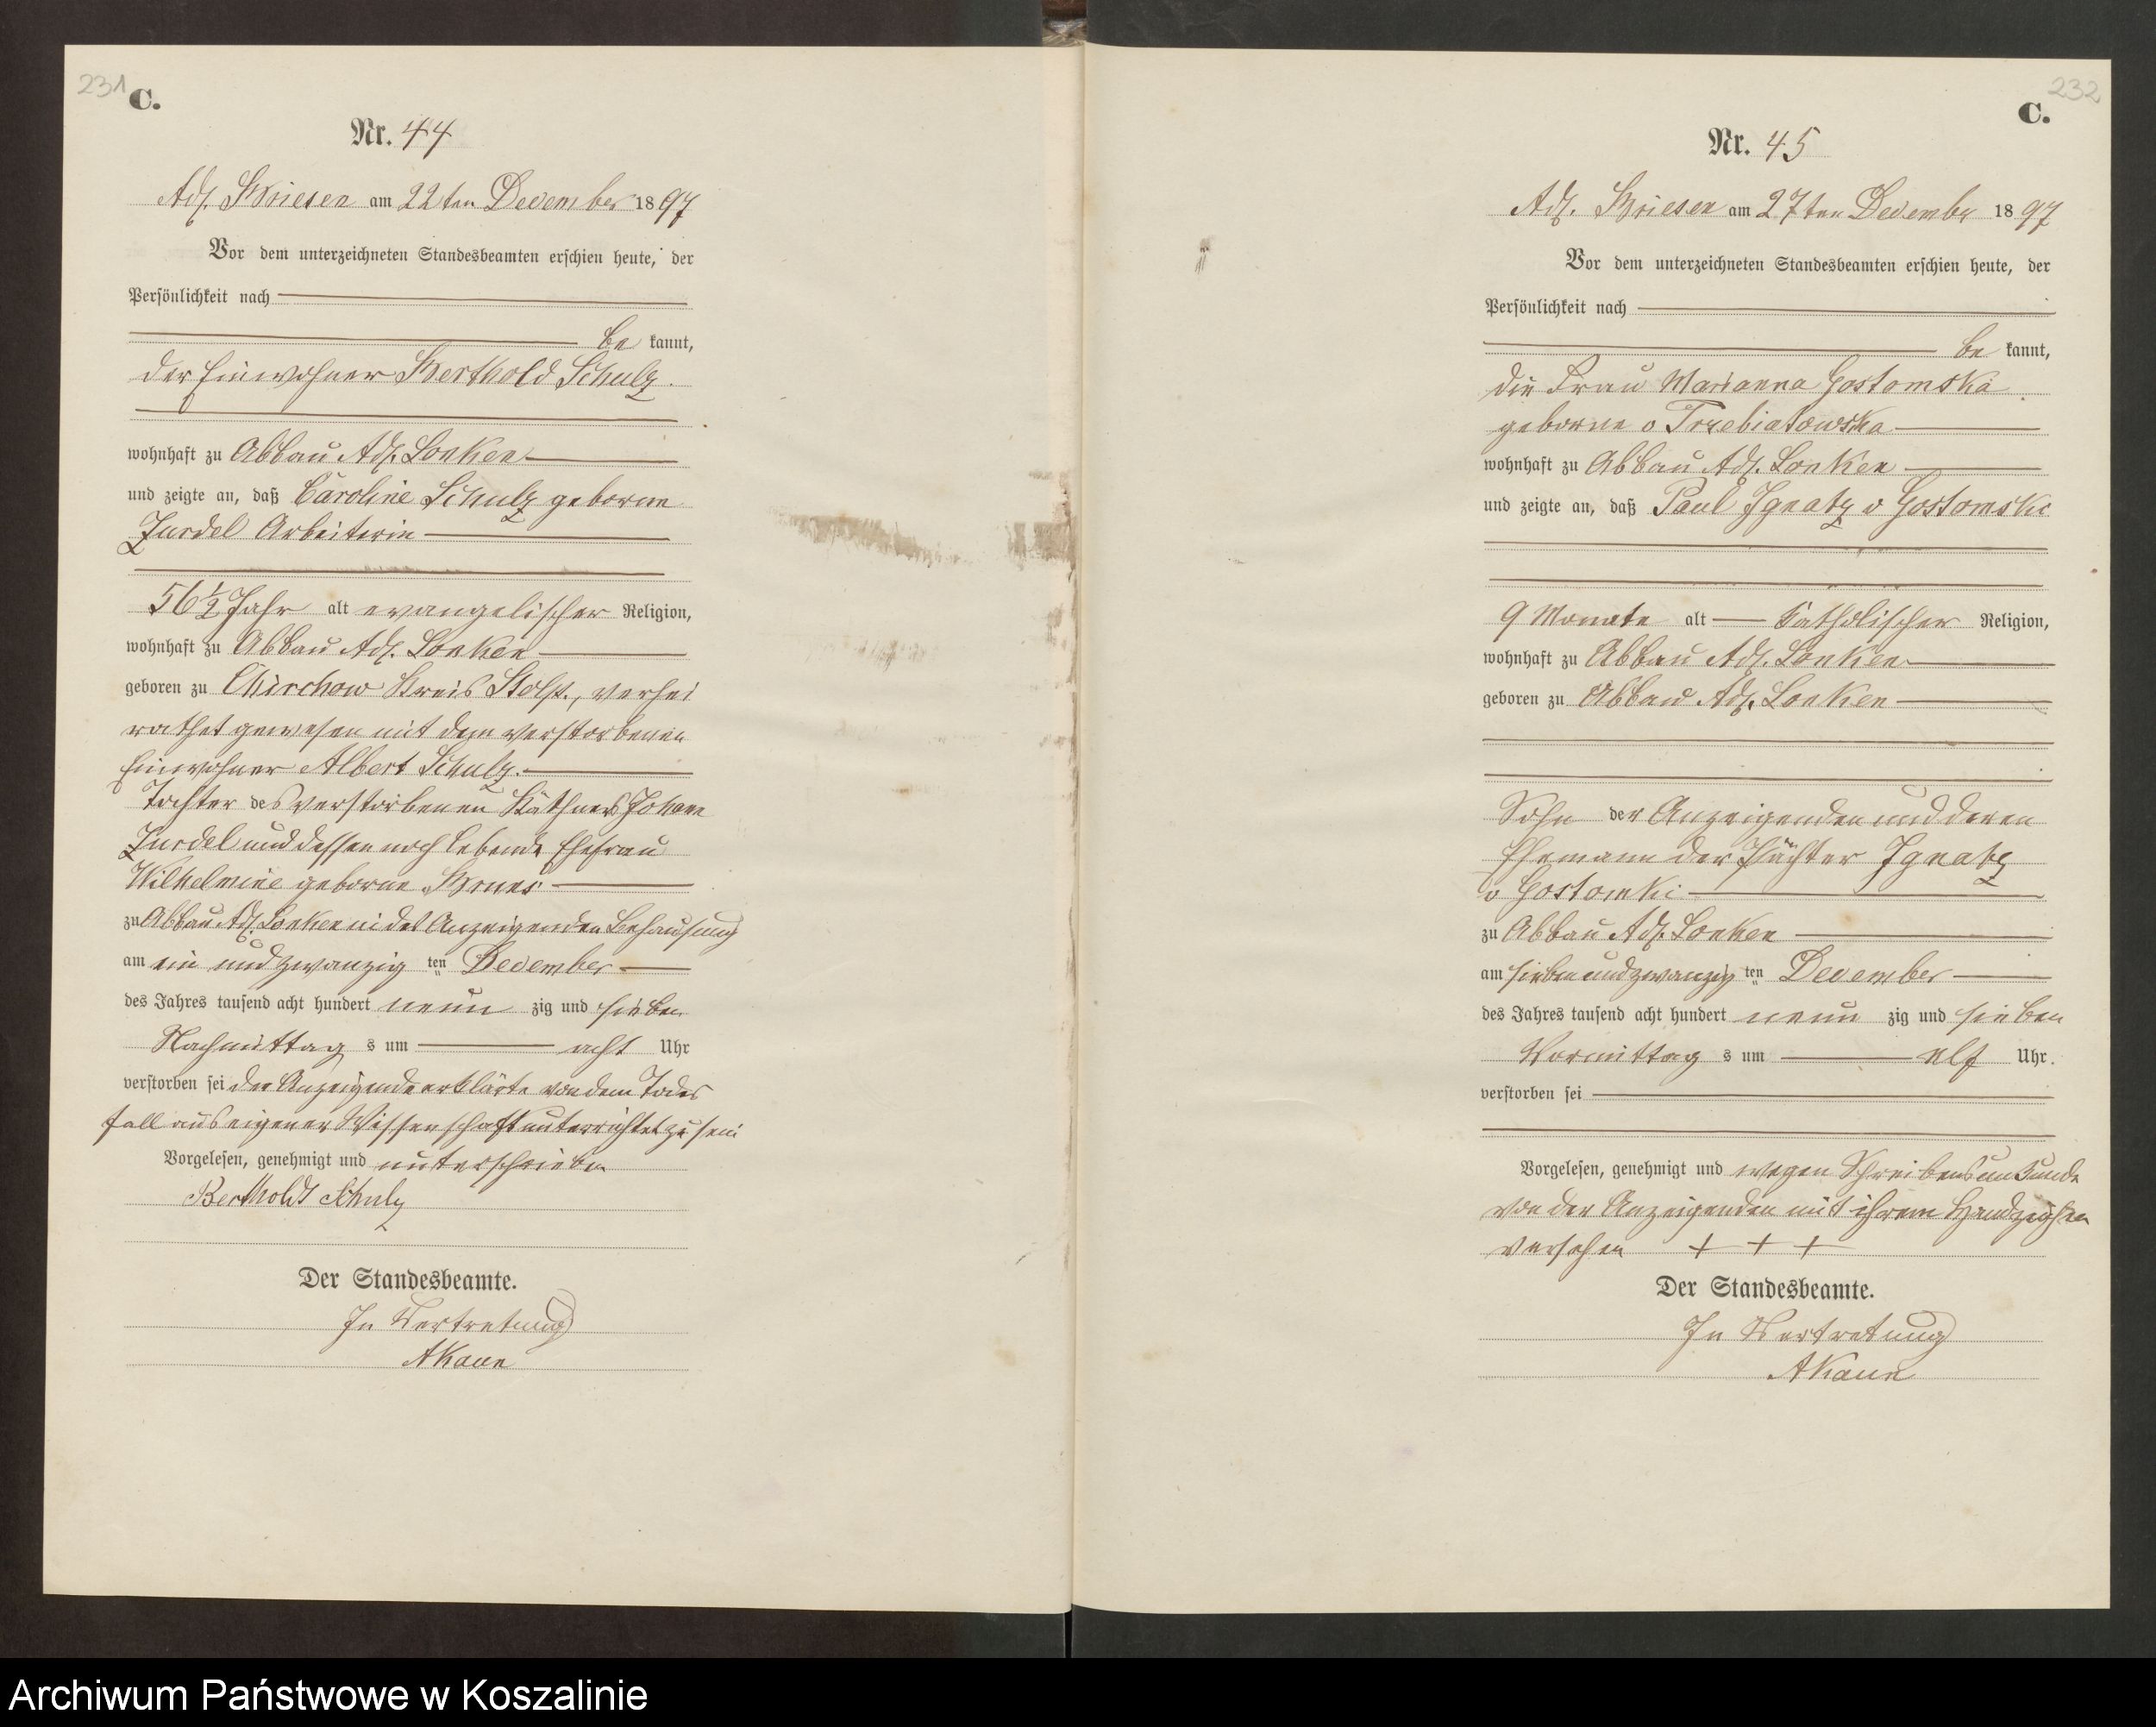 231
C.
Nr. 44
Adl. Briesen am 22ten December 1897
Vor dem unterzeichneten Standesbeamten erschien heute, der
Persönlichkeit nach
be kannt,
der Einwohner Berthold Schulz.
wohnhaft zu Abbau Adl. Lonken
und zeigte an, daß Caroline Schulz geborne
Zurdel Arbeiterin
56½ Jahr alt evangelischer Religion,
wohnhaft zu Abbau Adl. Lonken
geboren zu Chirchow Kreis Stolp., verhei
rathet gewesen mit dem verstorbenen
Einwohner Albert Schulz.
Tochter des verstorbenen Käthners Johann
Zurdel und dessen noch lebende Ehefrau
Wilhelmine geborne
zu Abbau Adl. Lonken in des Anzeigenden Behausung
am ein und zwanzig ten December
des Jahres tausend acht hundert neun zig und sieben
Nachmittag s um acht Uhr
verstorben sei der Anzeigende erklärte von dem Todes
fall aus eigener Wissenschaft unterrichtet zu sein
Vorgelesen, genehmigt und unterschrieben
Berthold Schulz
Der Standesbeamte.
In Vertretung
232
C.
Nr. 45
Adl. Briesen am 27ten December 1897
Vor dem unterzeichneten Standesbeamten erschien heute, der
Persönlichkeit nach
be kannt,
die Frau Marianna Gostomska
geborne v Trzebiatowska
wohnhaft zu Abbau Adl. Lonken
und zeigte an, daß Paul Ignatz v Gostomski
9 Monate alt katholischer Religion,
wohnhaft zu Abbau Adl. Lonken
geboren zu Abbau Adl. Lonken
Sohn der Anzeigenden und deren
Ehemann der Pächter Ignatz
v Gostomki
zu Abbau Adl. Lonken
am sieben und zwanzig ten December
des Jahres tausend acht hundert neun zig und sieben
Vormittag s um elf Uhr.
verstorben sei
Vorgelesen, genehmigt und wegen Schreibensunkunde
von der Anzeigenden mit ihrem Handzeichen
versehen + + +
Der Standesbeamte.
In Vertretung
Archiwum Państwowe w Koszalinie